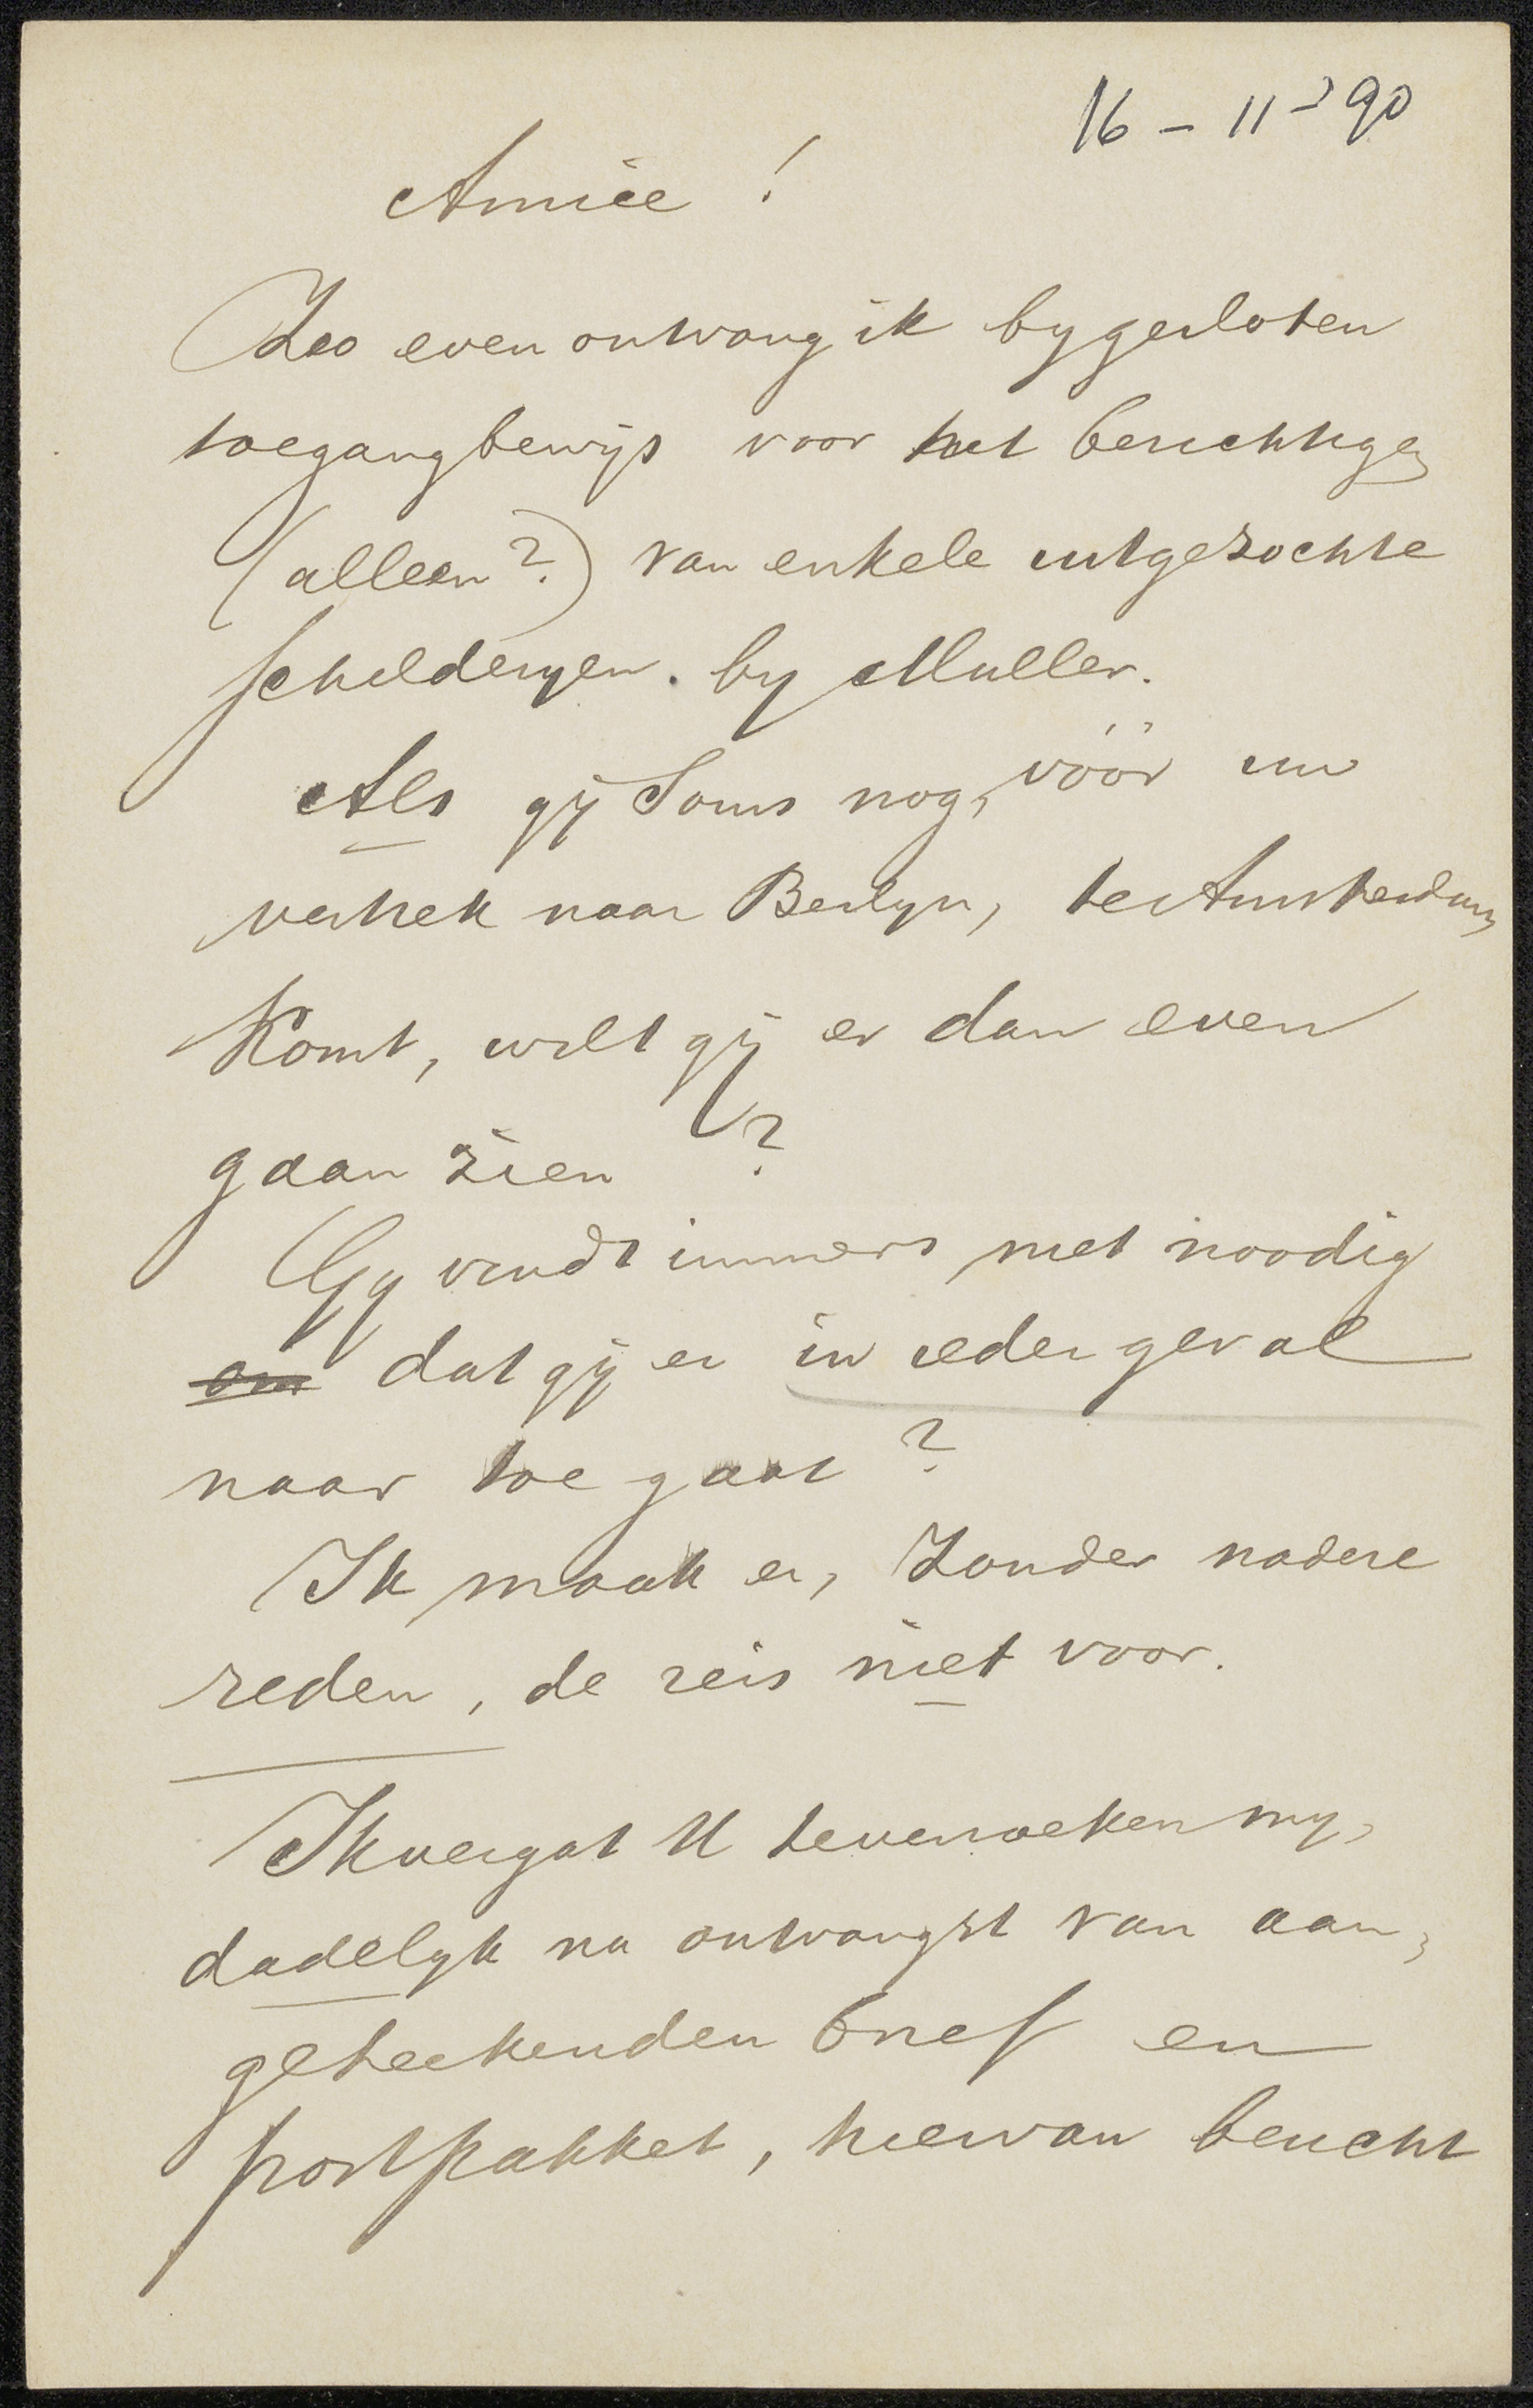 16-11-'90
Amice!
Zoo even ontvang ik bygesloten
toegangbewijs voor het bezichtigen
(alleen?) van enkele uitgezochte
schilderyen. by Muller.
Als gij soms nog, vóór uw
vertrek naar Berlyn, te Amsterdam,
komt, wilt gij er dan even
gaan zien?
Gy vindt immers niet noodig
om dat gij er in ieder geval
naar toe gaat?
Ik maak er, zonder nadere
reden, de reis niet voor.
Ik vergat U te verzoeken my,
dadelyk na ontvangst van aan,
geteekenden brief en
postpakket, hiervan bericht